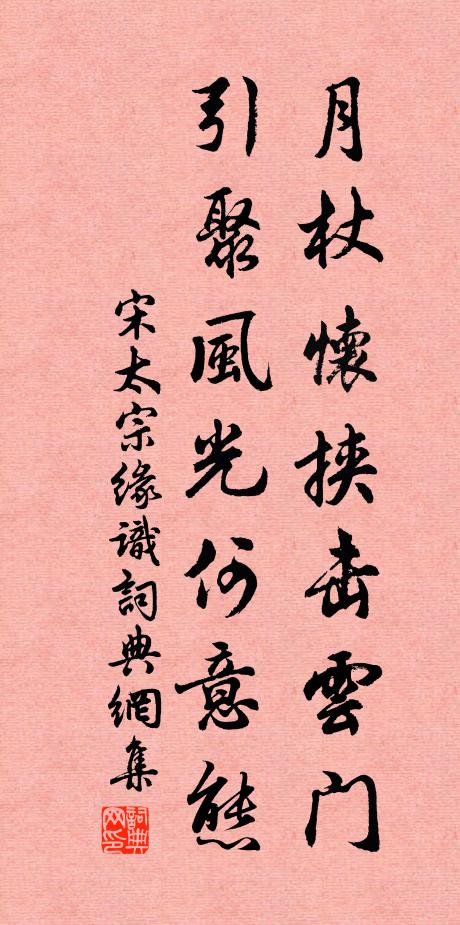 月杖懷挾击雲門
引聚風光何意態
宋太宗緣識詞典網集
詞典网印